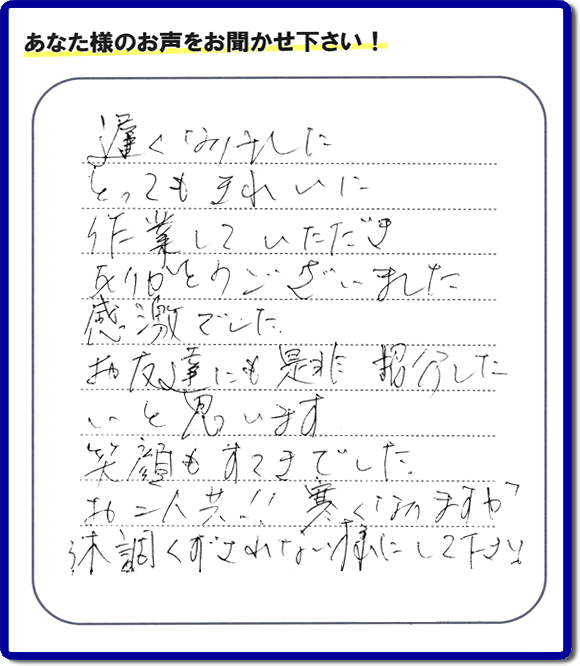 あなた様のお声をお聞かせ下さい！
遅くなりました
とってもきれいに
作業していただき
ありがとうございました
感激でした。
お友達にも是非紹介した
いと思います
笑顔もすてきでした。
お二人共!! 寒くなりますが
体調くずされない様にして下さい